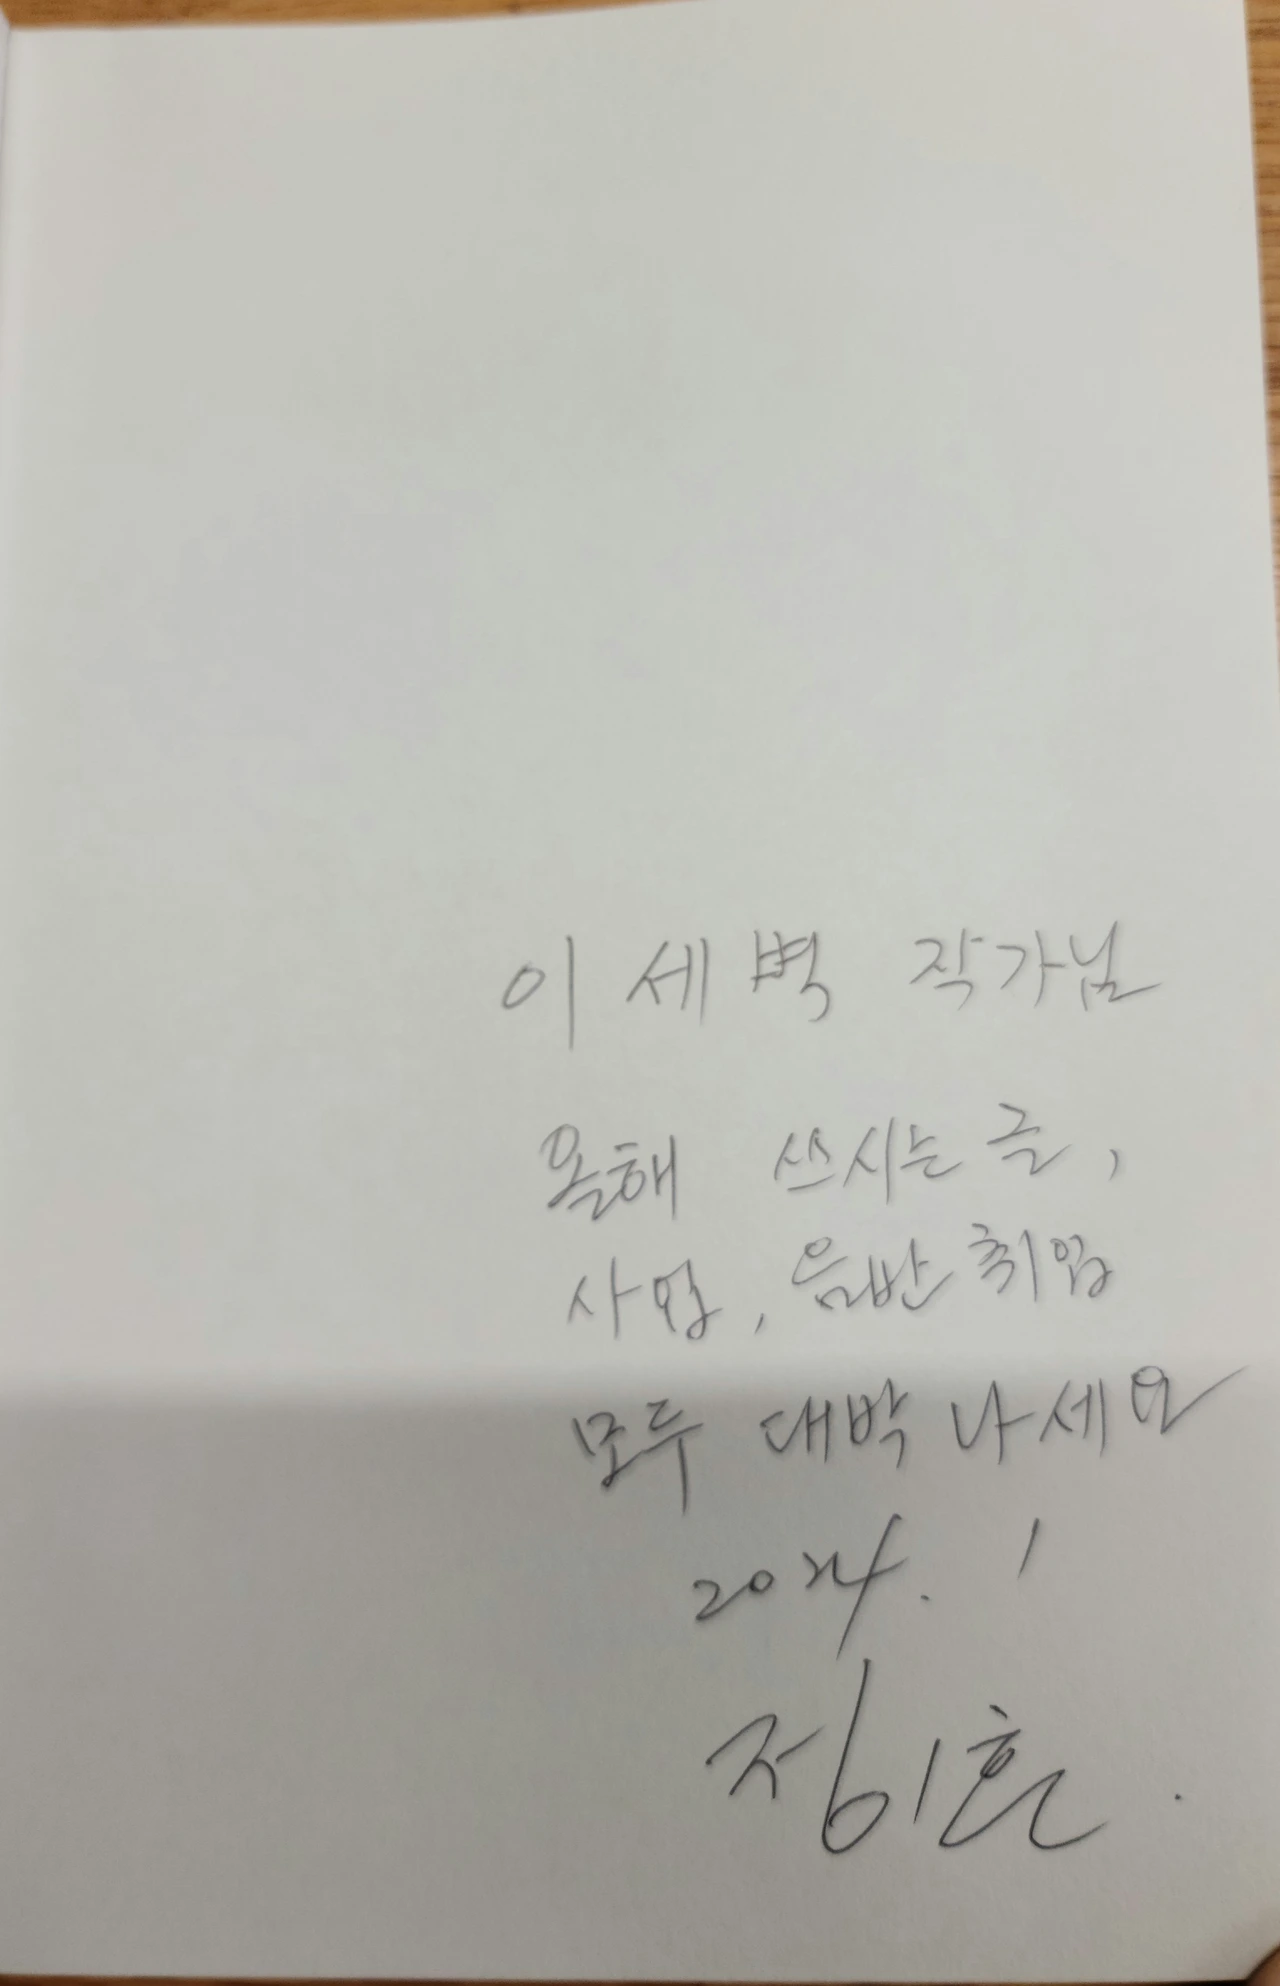 이 세 벽 작가님
올해 쓰시는 글,
사업, 음반 취업
모두 대박 나세요
2024. 1